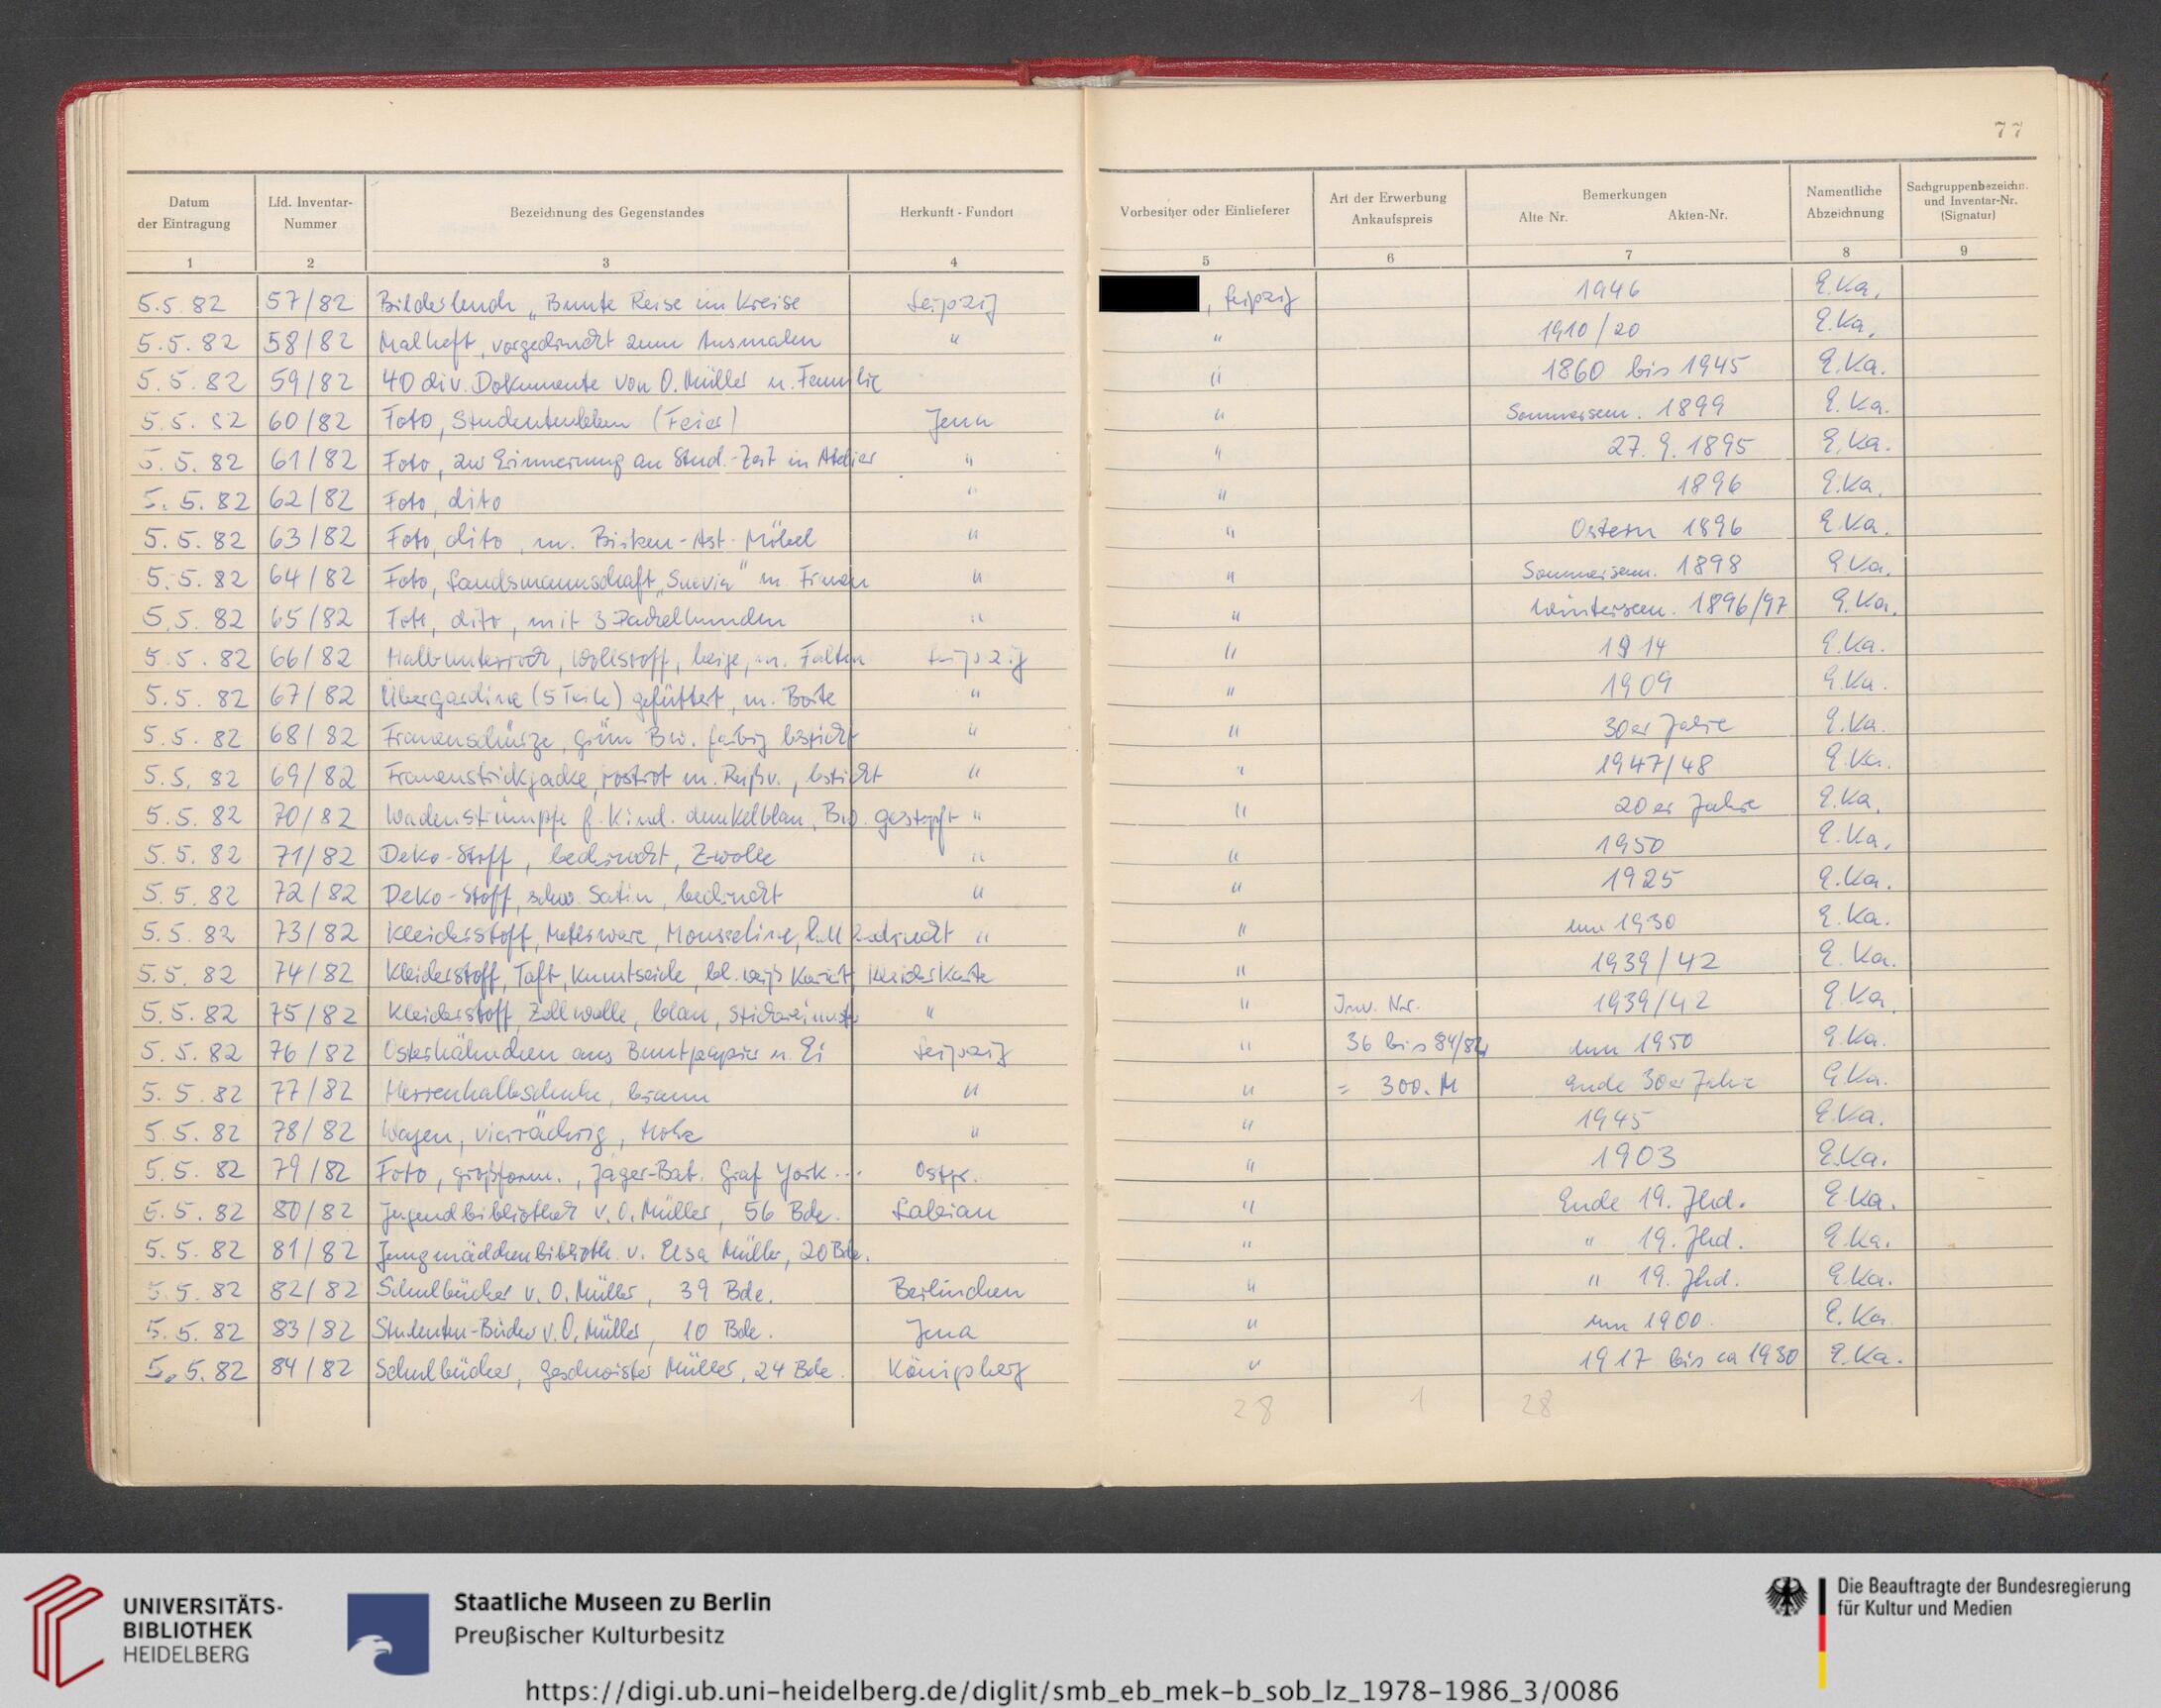 77
Datum der Eintragung | Lfd. Inventar-Nummer | Bezeichnung des Gegenstandes | Herkunft - Fundort | Vorbesitzer oder Einlieferer | Art der Erwerbung Ankaufspreis | Bemerkungen Alte Nr. Akten-Nr. | Namentliche Abzeichnung | Sachgruppenbezeichn. und Inventar-Nr. (Signatur)
1 | 2 | 3 | 4 | 5 | 6 | 7 | 8 | 9
5.5.82 | 57/82 | Bilderbuch „Bunte Reise im Kreise | Leipzig | , Leipzig | 1946 | E.Ka.
5.5.82 | 58/82 | Malheft, vorgedruckt zum Ausmalen | " | " | 1910/20 | E.Ka.
5.5.82 | 59/82 | 40 div. Dokumente von O. Müller u. Familie | " | 1860 bis 1945 | E.Ka.
5.5.82 | 60/82 | Foto, Studentenleben (Feier) | Jena | " | Sommersem. 1899 | E.Ka.
5.5.82 | 61/82 | Foto, zur Erinnerung an Stud.-Zeit in Atelier | " | " | 27.9.1895 | E.Ka.
5.5.82 | 62/82 | Foto, dito | " | " | 1896 | E.Ka.
5.5.82 | 63/82 | Foto, dito, m. Birken-Ast-Möbel | " | " | Ostern 1896 | E.Ka.
5.5.82 | 64/82 | Foto, Landsmannschaft „Suevia" m. Frauen | " | " | Sommersem. 1898 | E.Ka.
5.5.82 | 65/82 | Foto, dito, mit 3 Dackelhunden | " | " | Wintersem. 1896/97 | E.Ka.
5.5.82 | 66/82 | Halbunterrock, Wollstoff, beige, m. Falten | Leipzig | " | 1914 | E.Ka.
5.5.82 | 67/82 | Übergardine (5 Teile) gefüttert, m. Borte | " | " | 1909 | E.Ka.
5.5.82 | 68/82 | Frauenschürze, grün Bw. farbig bestickt | " | " | 30er Jahre | E.Ka.
5.5.82 | 69/82 | Frauenstrickjacke, rostrot m. Reißv., bestickt | " | " | 1947/48 | E.Ka.
5.5.82 | 70/82 | Wadenstrümpfe f. Kind. dunkelblau, Bw. gestopft | " | " | 20er Jahre | E.Ka.
5.5.82 | 71/82 | Deko-Stoff, bedruckt, Zwolle | " | " | 1950 | E.Ka.
5.5.82 | 72/82 | Deko-Stoff, schw. Satin, bedruckt | " | " | 1925 | E.Ka.
5.5.82 | 73/82 | Kleiderstoff, Meterware, Mousseline, bedruckt | " | " | um 1930 | E.Ka.
5.5.82 | 74/82 | Kleiderstoff, Taft, Kunstseide, bl. weiß kariert, Kleiderkarte | " | 1939/42 | E.Ka.
5.5.82 | 75/82 | Kleiderstoff, Zellwolle, blau, | " | " | Inv. Nr. | 1939/42 | E.Ka.
5.5.82 | 76/82 | Osterhähnchen aus Buntpapier u. Ei | Leipzig | " | 36 bis 84/82 | um 1950 | E.Ka.
5.5.82 | 77/82 | Herrenhalbschuhe, braun | " | " | = 300.M | Ende 30er Jahre | E.Ka.
5.5.82 | 78/82 | Wagen, vierrädrig, Holz | " | " | 1945 | E.Ka.
5.5.82 | 79/82 | Foto, großform., Jäger-Bat. Graf York... | Ostpr. | " | 1903 | E.Ka.
5.5.82 | 80/82 | Jugendbibliothek v. O. Müller, 56 Bde. | Labiau | " | Ende 19. Jhd. | E.Ka.
5.5.82 | 81/82 | Jungmädchenbiblioth. v. Elsa Müller, 20 Bde. | " | " 19. Jhd. | E.Ka.
5.5.82 | 82/82 | Schulbücher v. O. Müller, 39 Bde. | Berlinchen | " | " 19. Jhd. | E.Ka.
5.5.82 | 83/82 | Studenten-Bücher v. O. Müller, 10 Bde. | Jena | " | um 1900 | E.Ka.
5.5.82 | 84/82 | Schulbücher, Geschwister Müller, 24 Bde. | Königsberg | " | 1917 bis ca 1930 | E.Ka.
28 | 1 | 28
UNIVERSITÄTS-
BIBLIOTHEK
HEIDELBERG
Staatliche Museen zu Berlin
Preußischer Kulturbesitz
Die Beauftragte der Bundesregierung
für Kultur und Medien
https://digi.ub.uni-heidelberg.de/diglit/smb_eb_mek-b_sob_lz_1978-1986_3/0086